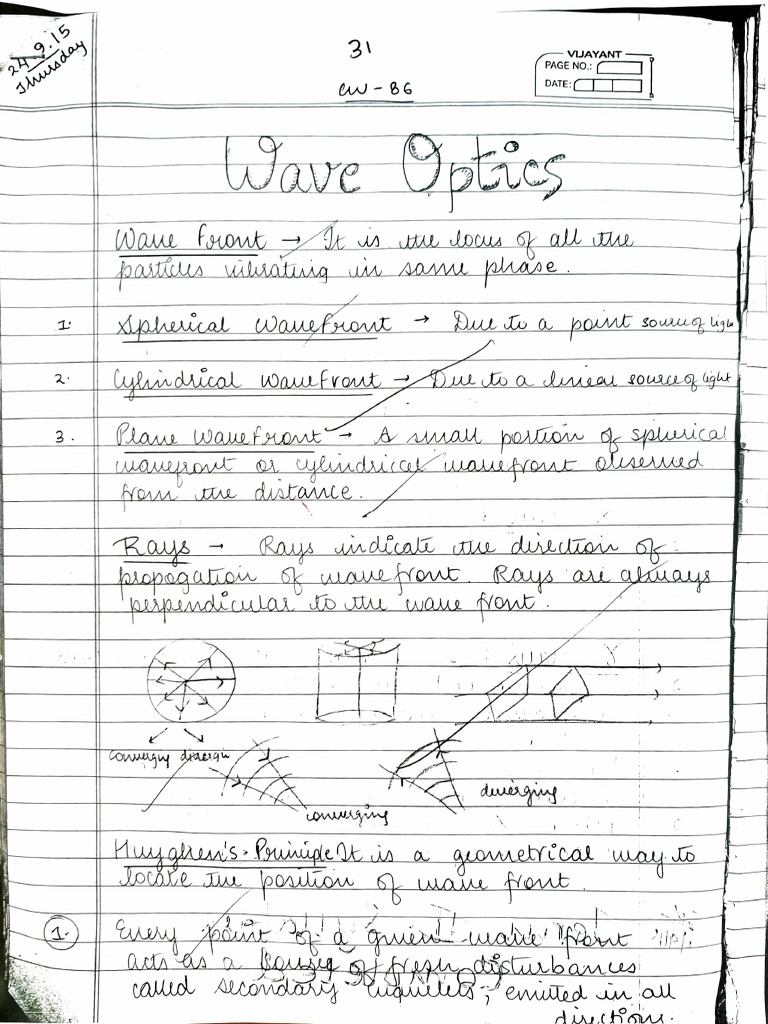 24.9.15
Thursday
31
CW - 86
VIJAYANT
PAGE NO.:
DATE:
Wave Optics
Wave Front → It is the locus of all the
particles vibrating in same phase.
1. Spherical Wavefront → Due to a point source of light
2. Cylindrical Wavefront → Due to a linear source of light
3. Plane Wavefront → A small portion of spherical
wavefront or cylindrical wavefront observed
from the distance.
Rays → Rays indicate the direction of
propogation of wavefront. Rays are always
perpendicular to the wave front.
converging
converging
diverging
Huyghen's Principle It is a geometrical way to
locate the position of wave front.
1. Every point of a given wave front
acts as a of fresh disturbances
called secondary wavelets, emitted in all
direction.